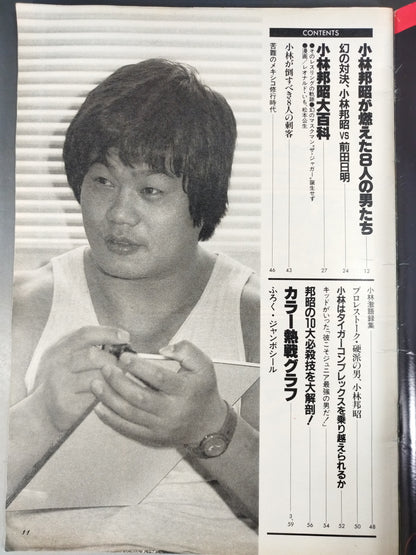 CONTENTS
小林邦昭が燃えた8人の男たち
12
幻の対決、小林邦昭 VS 前田日明
24
小林邦昭大百科
27
●そのレスリングの軌跡●幻のマスクマン“ザ・ジャガー”誕生せず
●漫画/レオナルド・いも、松本公生
小林が倒すべき8人の刺客
43
苦難のメキシコ修行時代
46
小林激語録集
48
プロレストーク・硬派の男、小林邦昭
50
小林はタイガーコンプレックスを乗り越えられるか
52
キッドがいった「彼こそジュニア最強の男だ!」
54
邦昭の10大必殺技を大解剖!
56
カラー熱戦グラフ
3
59
ふろく・ジャンボシール
11